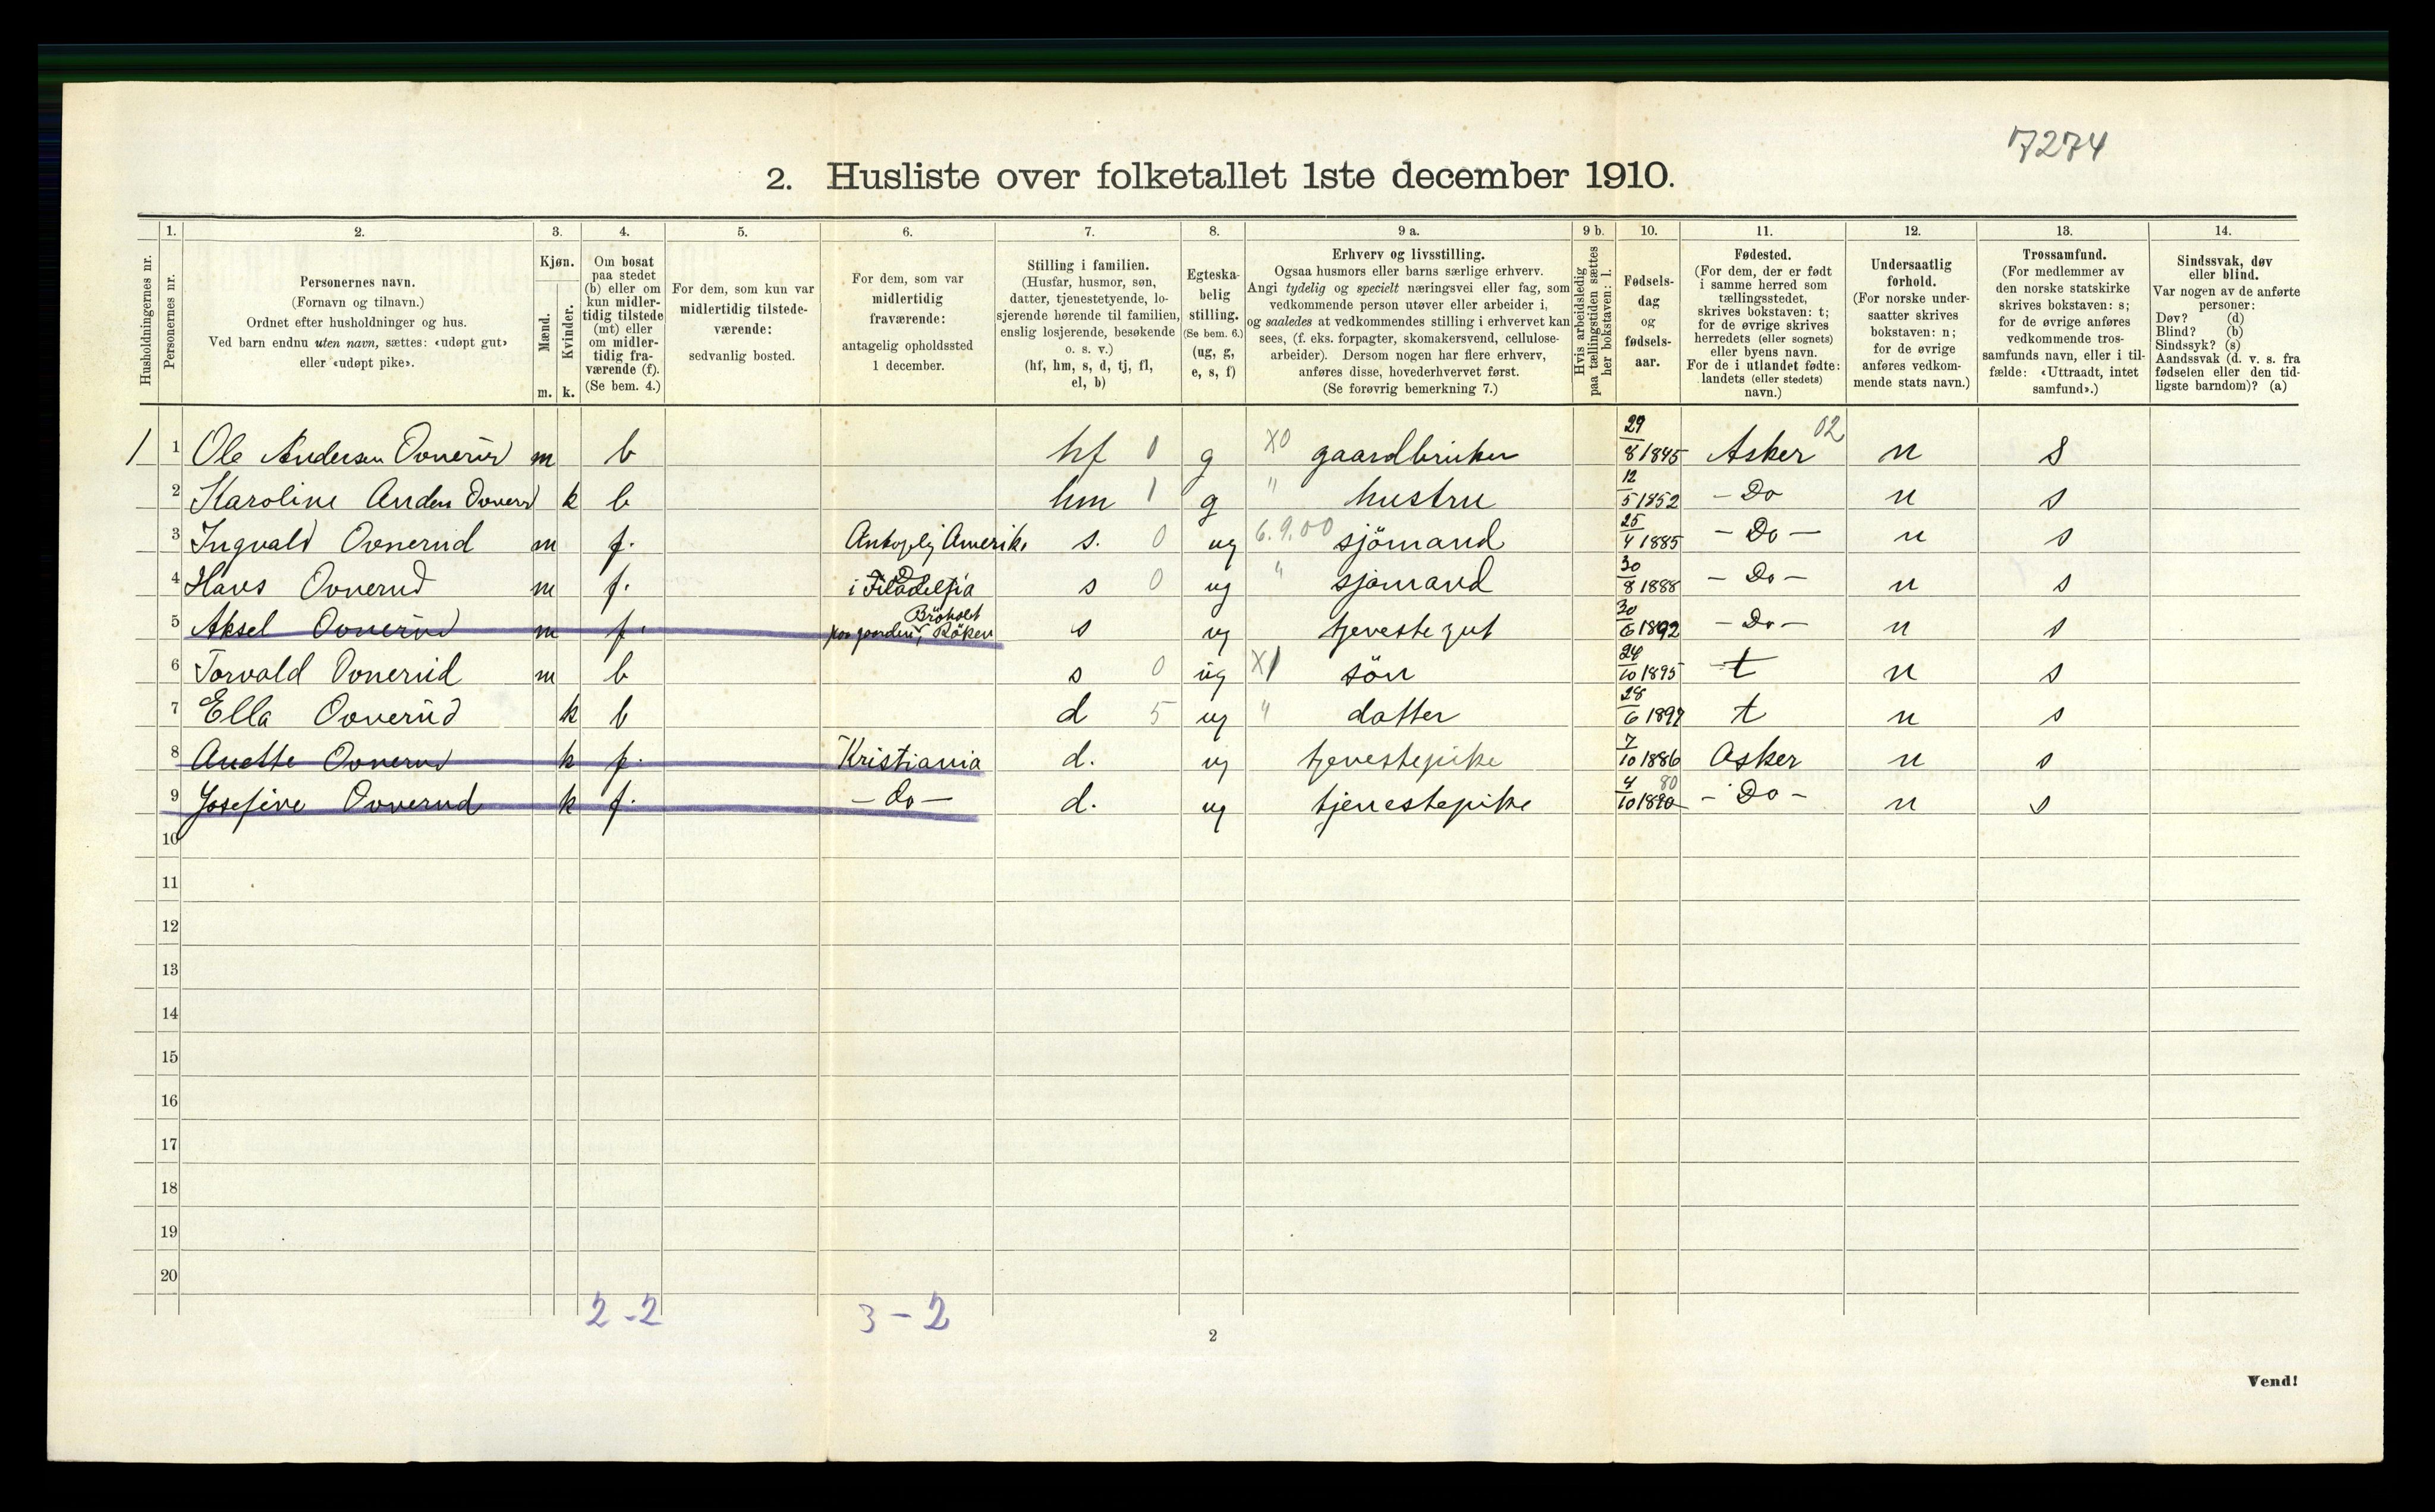 7274
2. Husliste over folketallet 1ste december 1910.
Husholdningernes nr.
1.
Personernes nr.
2.
Personernes navn.
(Fornavn og tilnavn.)
Ordnet efter husholdninger og hus.
Ved barn endnu uten navn, sættes: «udøpt gut»
eller «udøpt pike».
3.
Kjøn.
Mænd.
m.
Kvinder.
k.
4.
Om bosat
paa stedet
(b) eller om
kun midler-
tidig tilstede
(mt) eller
om midler-
tidig fra-
værende (f).
(Se bem. 4.)
5.
For dem, som kun var
midlertidig tilstede-
værende:
sedvanlig bosted.
6.
For dem, som var
midlertidig
fraværende:
antagelig opholdssted
1 december.
7.
Stilling i familien.
(Husfar, husmor, søn,
datter, tjenestetyende, lo-
sjerende hørende til familien,
enslig losjerende, besøkende
o. s. v.)
(hf, hm, s, d, tj, fl,
el, b)
8.
Egteska-
belig
stilling.
(Se bem. 6.)
(ug, g,
e, s, f)
9 a.
Erhverv og livsstilling.
Ogsaa husmors eller barns særlige erhverv.
Angi tydelig og specielt næringsvei eller fag, som
vedkommende person utøver eller arbeider i,
og saaledes at vedkommendes stilling i erhvervet kan
sees, (f. eks. forpagter, skomakersvend, cellulose-
arbeider). Dersom nogen har flere erhverv,
anføres disse, hovederhvervet først.
(Se forøvrig bemerkning 7.)
9 b.
Hvis arbeidsledig
paa tællingstiden sættes
her bokstaven: l.
10.
Fødsels-
dag
og
fødsels-
aar.
11.
Fødested.
(For dem, der er født
i samme herred som
tællingsstedet,
skrives bokstaven: t;
for de øvrige skrives
herredets (eller sognets)
eller byens navn.
For de i utlandet fødte:
landets (eller stedets)
navn.)
12.
Undersaatlig
forhold.
(For norske under-
saatter skrives
bokstaven: n;
for de øvrige
anføres vedkom-
mende stats navn.)
13.
Trossamfund.
(For medlemmer av
den norske statskirke
skrives bokstaven: s;
for de øvrige anføres
vedkommende tros-
samfunds navn, eller i til-
fælde: «Uttraadt, intet
samfund».)
14.
Sindssvak, døv
eller blind.
Var nogen av de anførte
personer:
Døv? (d)
Blind? (b)
Sindssyk? (s)
Aandssvak (d. v. s. fra
fødselen eller den tid-
ligste barndom)? (a)
1 1 Ole Andersen Ovnerud m b hf 0 g X0 gaardbruker 29/8 1845 Asker 02 n s
2 Karoline Anders Ovnerud k b hm 1 g " hustru 12/5 1852 - Do n s
3 Ingvald Ovnerud m f. Antagelig Amerika s. 0 ug 6.9.00 sjömand 25/4 1885 - Do - n s
4 Hans Ovnerud m f. i Filadelfia s 0 ug " sjömand 30/8 1888 - Do - n s
5 Aksel Ovnerud m f. Bröholt Röken s ug tjeneste gut 30/6 1892 - Do - n s
6 Torvald Ovnerud m b s 0 ug X1 sön 24/10 1895 t n s
7 Ella Ovnerud k b d 5 ug " datter 28/6 1897 t n s
8 Anette Ovnerud k f. Kristiania d. ug tjenestepike 7/10 1886 Asker n s
9 Josefine Ovnerud k f. - do - d. ug tjenestepike 4/10 1890 80 - Do - n s
10
11
12
13
14
15
16
17
18
19
20
2-2
3-2
2
Vend!